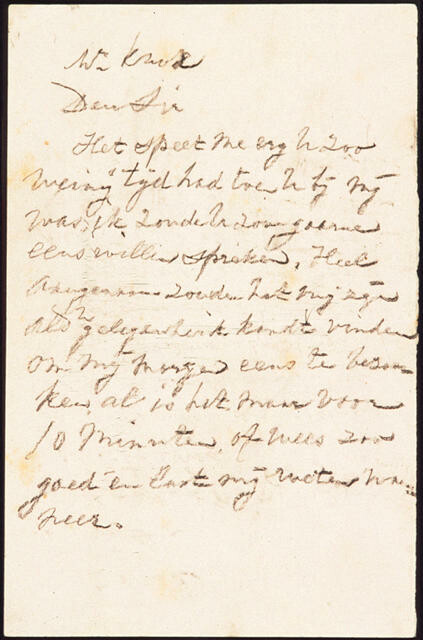 Wm Knox
Dear Sir
Het speet me erg U zoo
weinig tijd had toen U bij mij
was, ik zoude U zoo gaarne
eens willen spreken. Heel
aangenaam zoude het mij zijn
als U gelegenheid kondt vinden
om mij morgen eens te bezoe-
ken, al is het maar voor
10 minuten, of wees zoo
goed en laat mij weten wan-
neer.